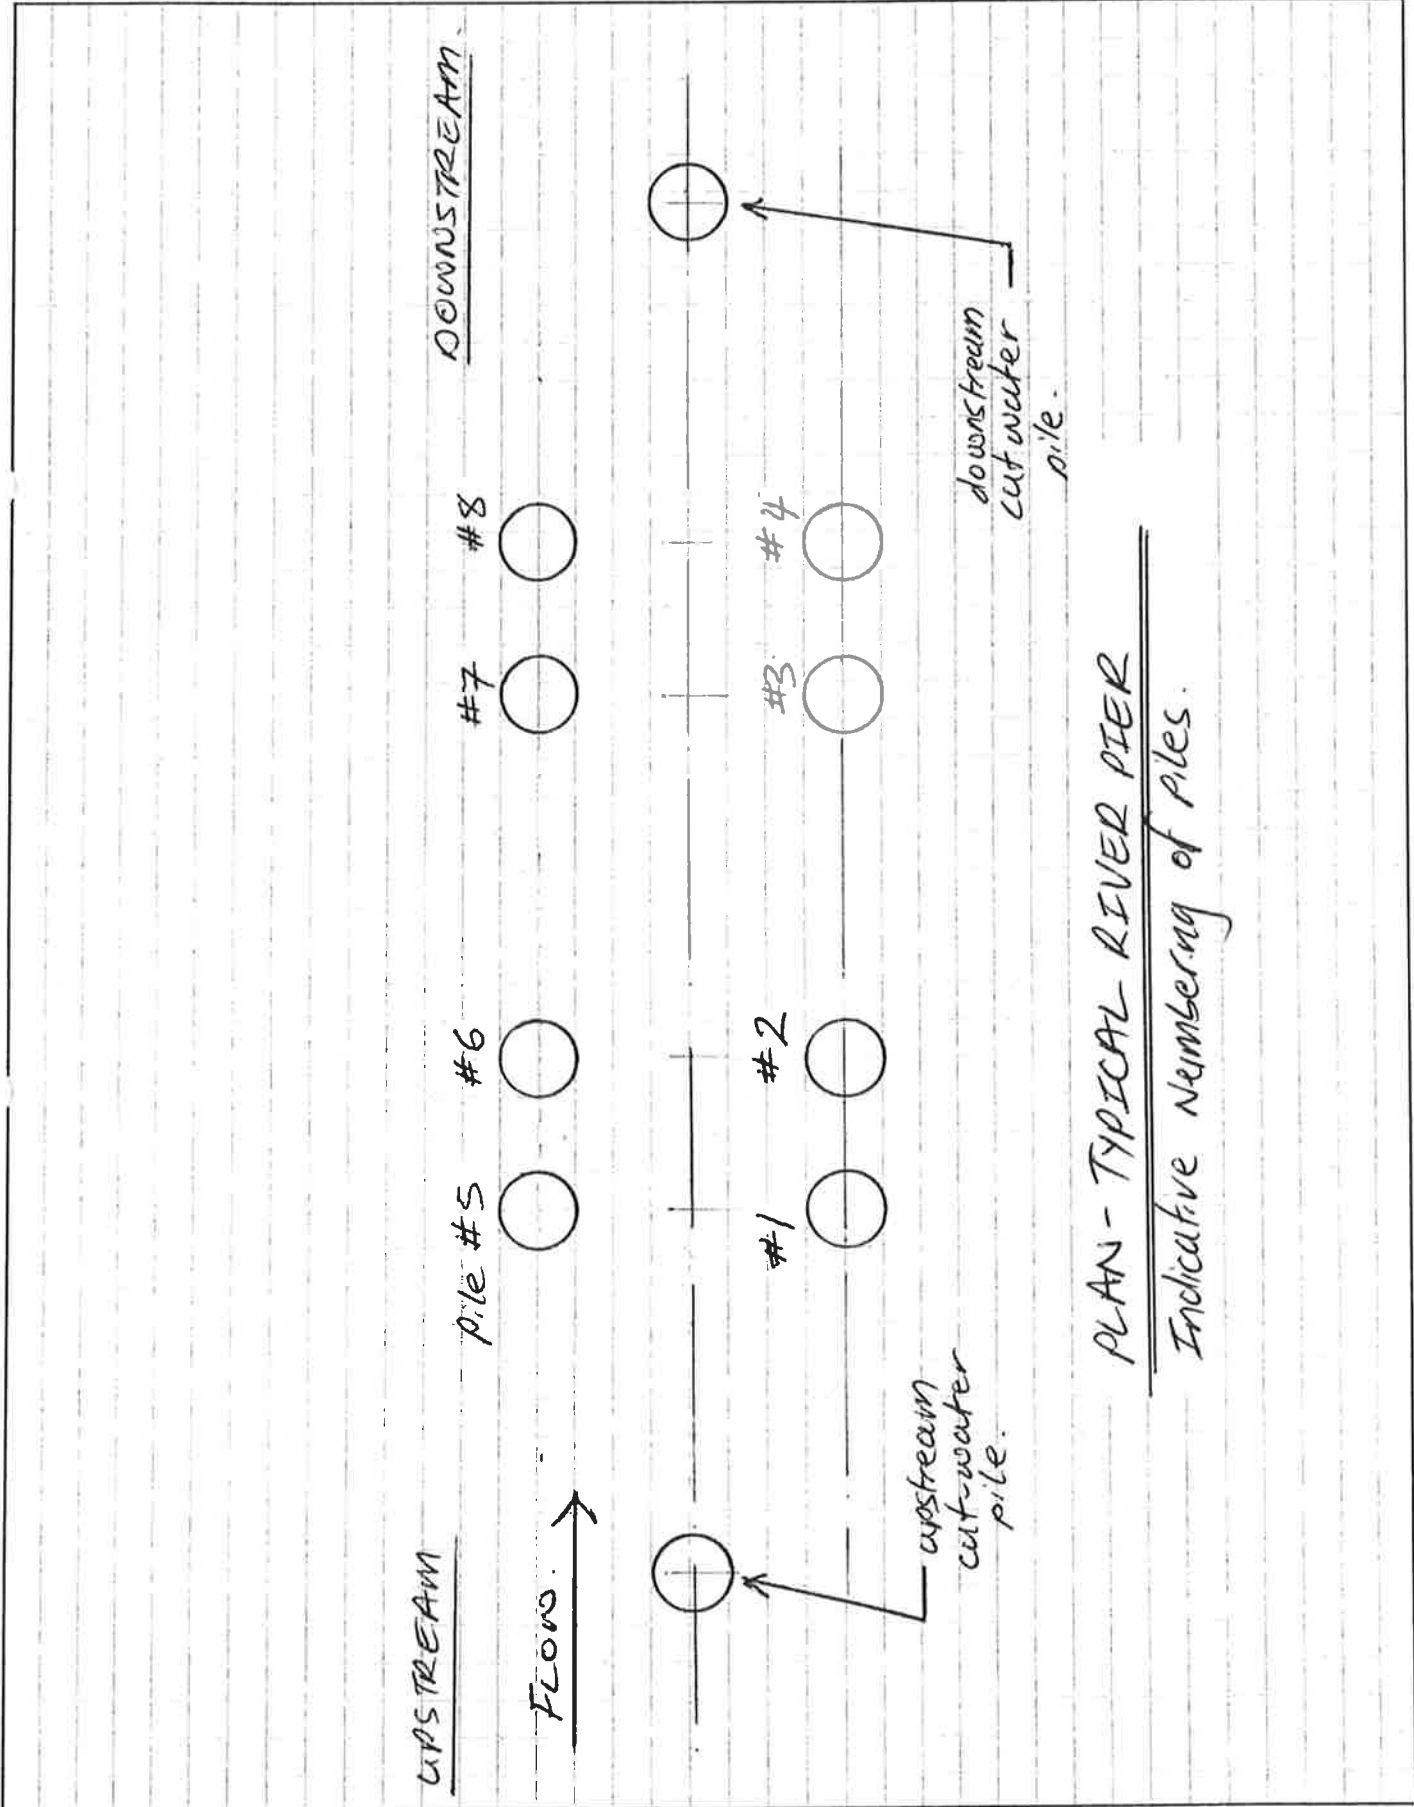 UPSTREAM
DOWNSTREAM.
FLOW.
pile #5
#6
#7
#8
#1
#2
#3
#4
upstream
cut-water
pile.
downstream
cut water
pile.
PLAN - TYPICAL RIVER PIER
Indicative Numbering of Piles.